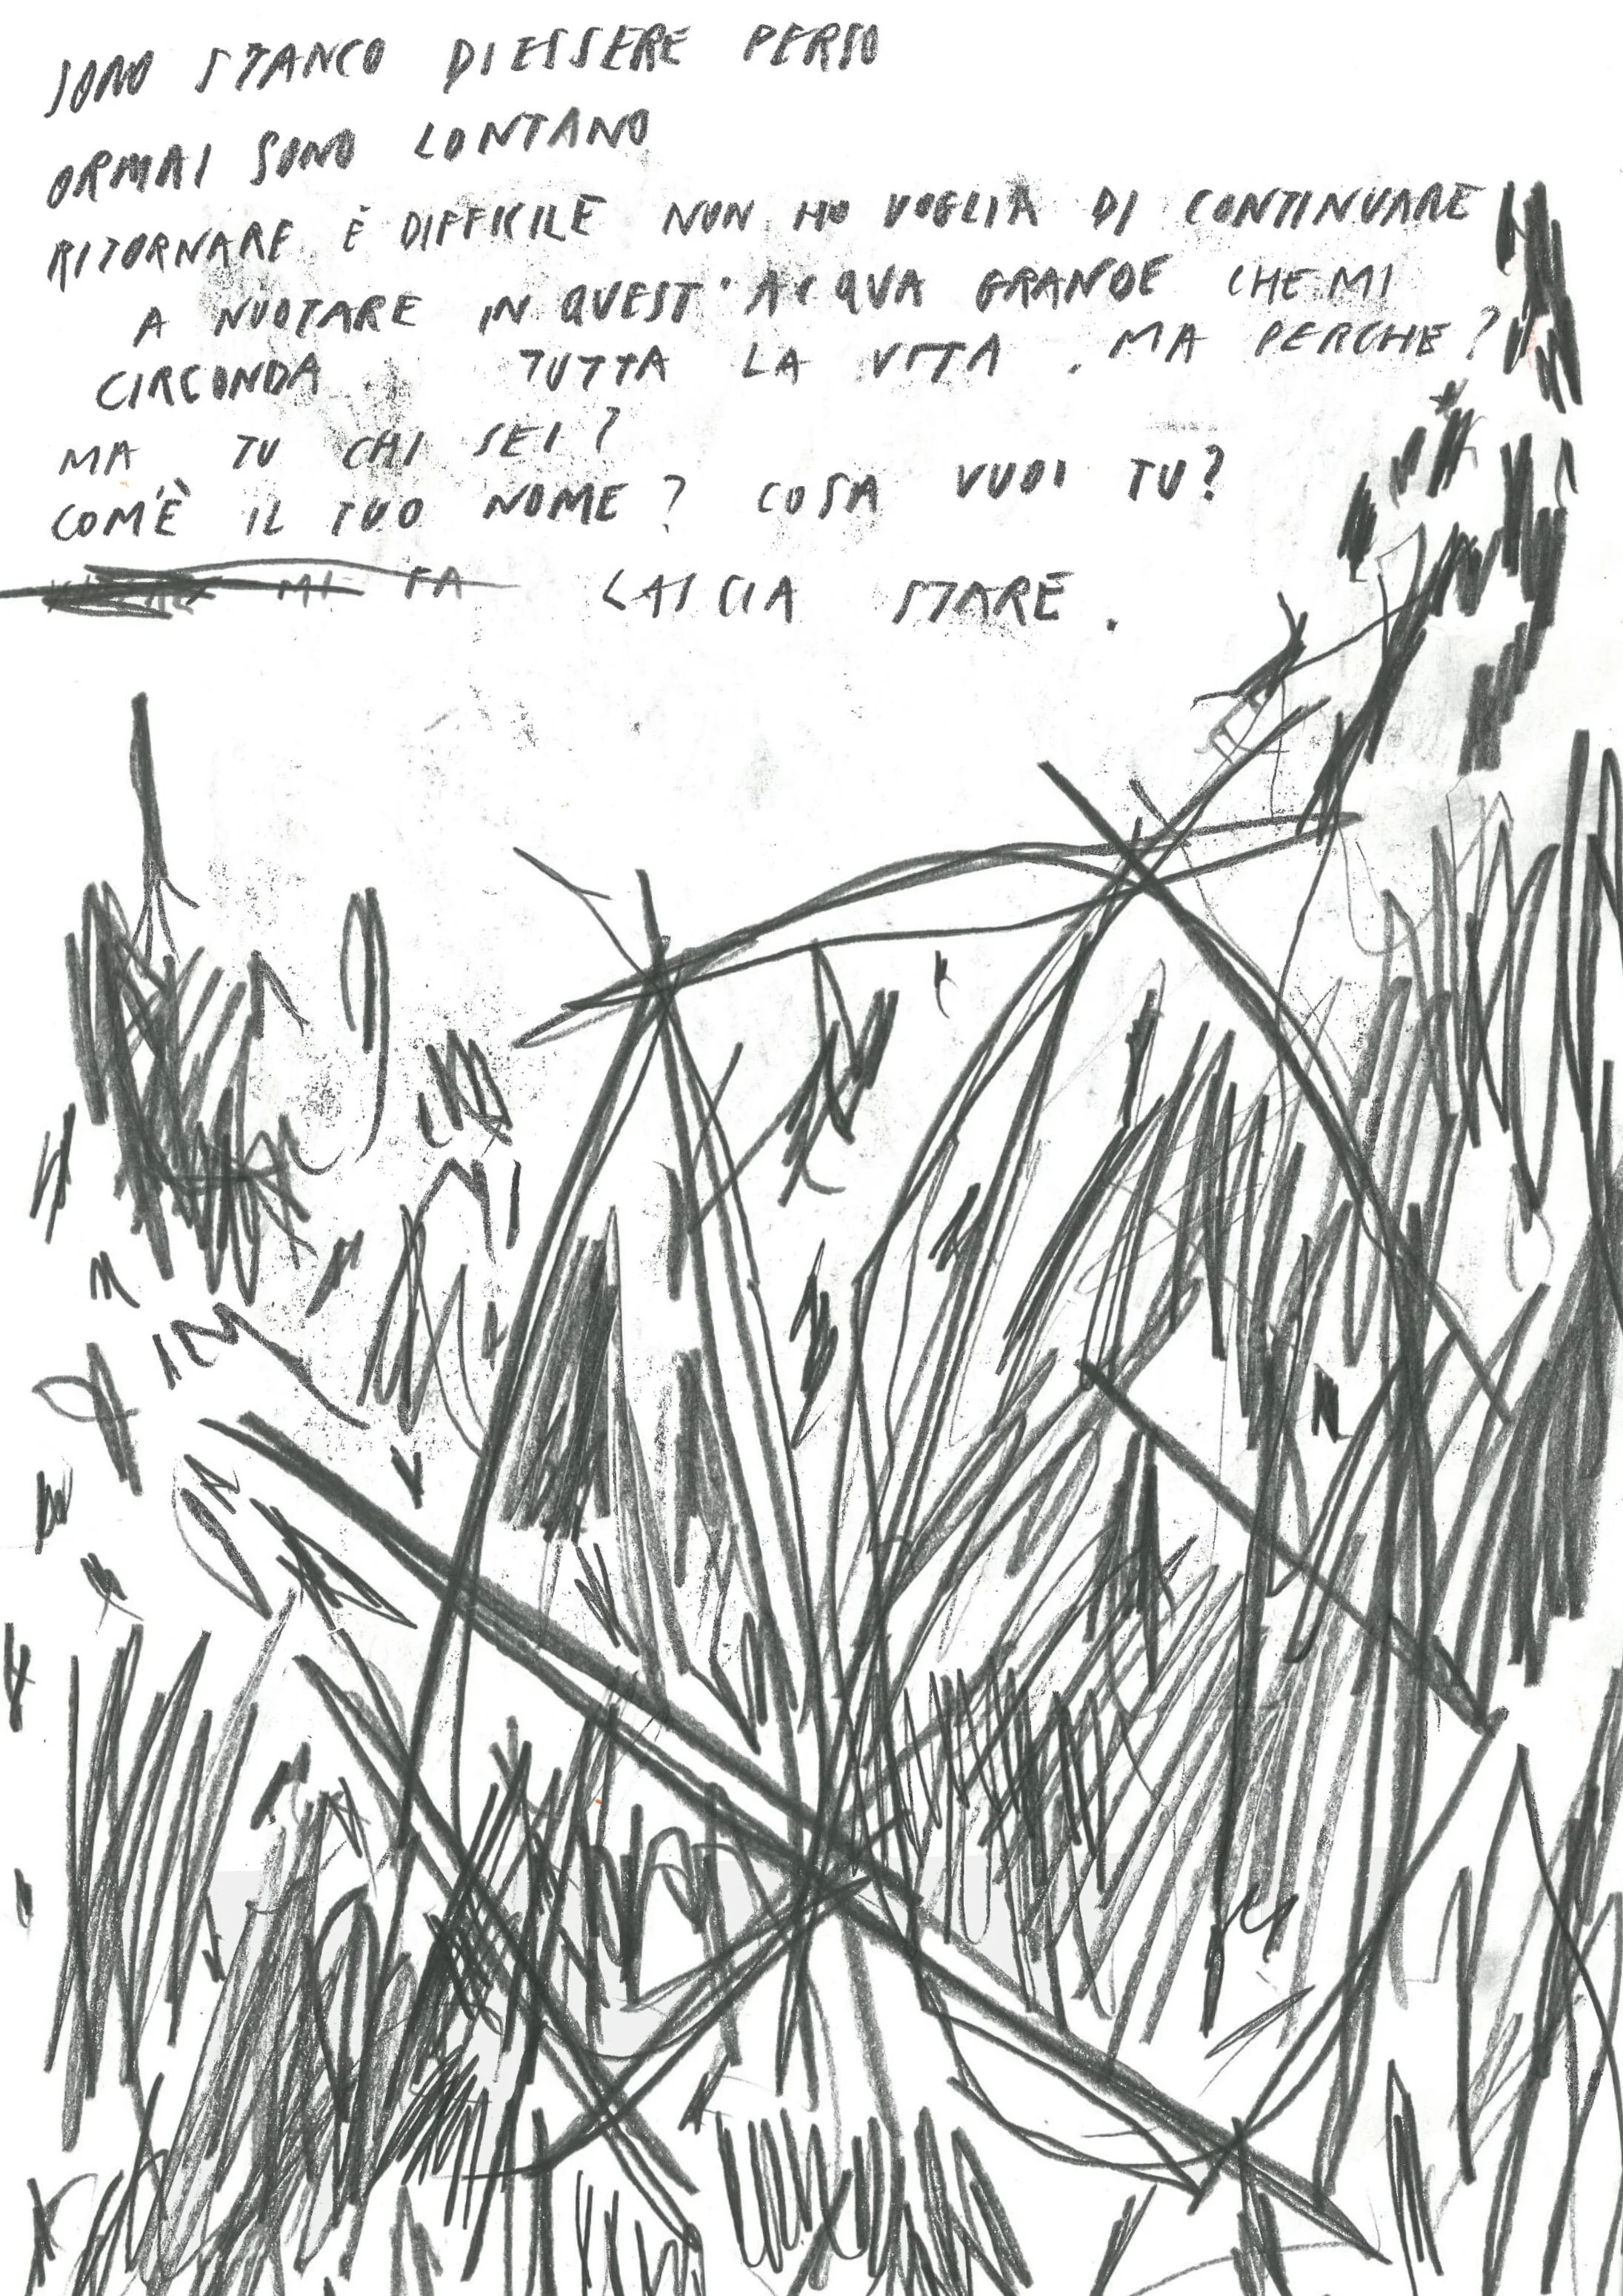 SONO STANCO DI ESSERE PERSO
ORMAI SONO LONTANO
RITORNARE È DIFFICILE NON HO VOGLIA DI CONTINUARE
A NUOTARE IN QUEST'ACQUA GRANDE CHE MI
CIRCONDA TUTTA LA VITA. MA PERCHE?
MA TU CHI SEI?
COM'È IL TUO NOME? COSA VUOI TU?
MI FA LASCIA STARE.